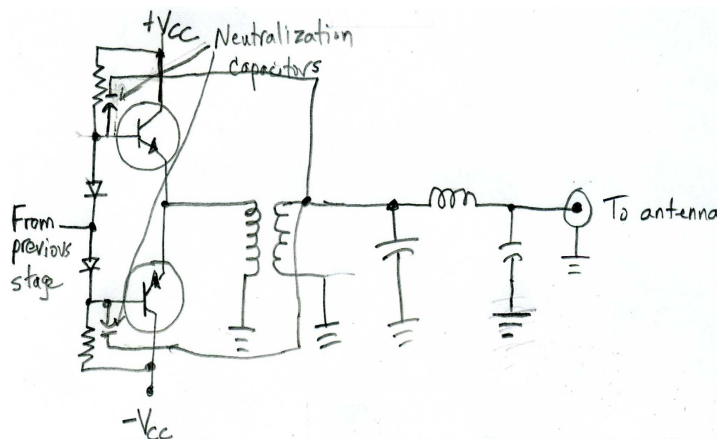 +Vcc
Neutralization
capacitors
From
previous
stage
To antenna
-Vcc